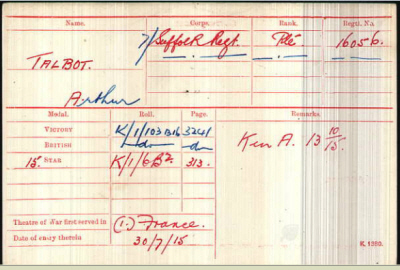 Name. Corps. Rank. Regtl. No.
TALBOT. 7/Suffolk Regt. Pte 16056.
Arthur
Medal. Roll. Page. Remarks.
VICTORY K/1/103B16 3241
BRITISH -do- -do-
15 STAR K/1/6B2 313. K in A. 13 10/15.
Theatre of War first served in (1.) France.
Date of entry therein 30/7/15
K. 1380.